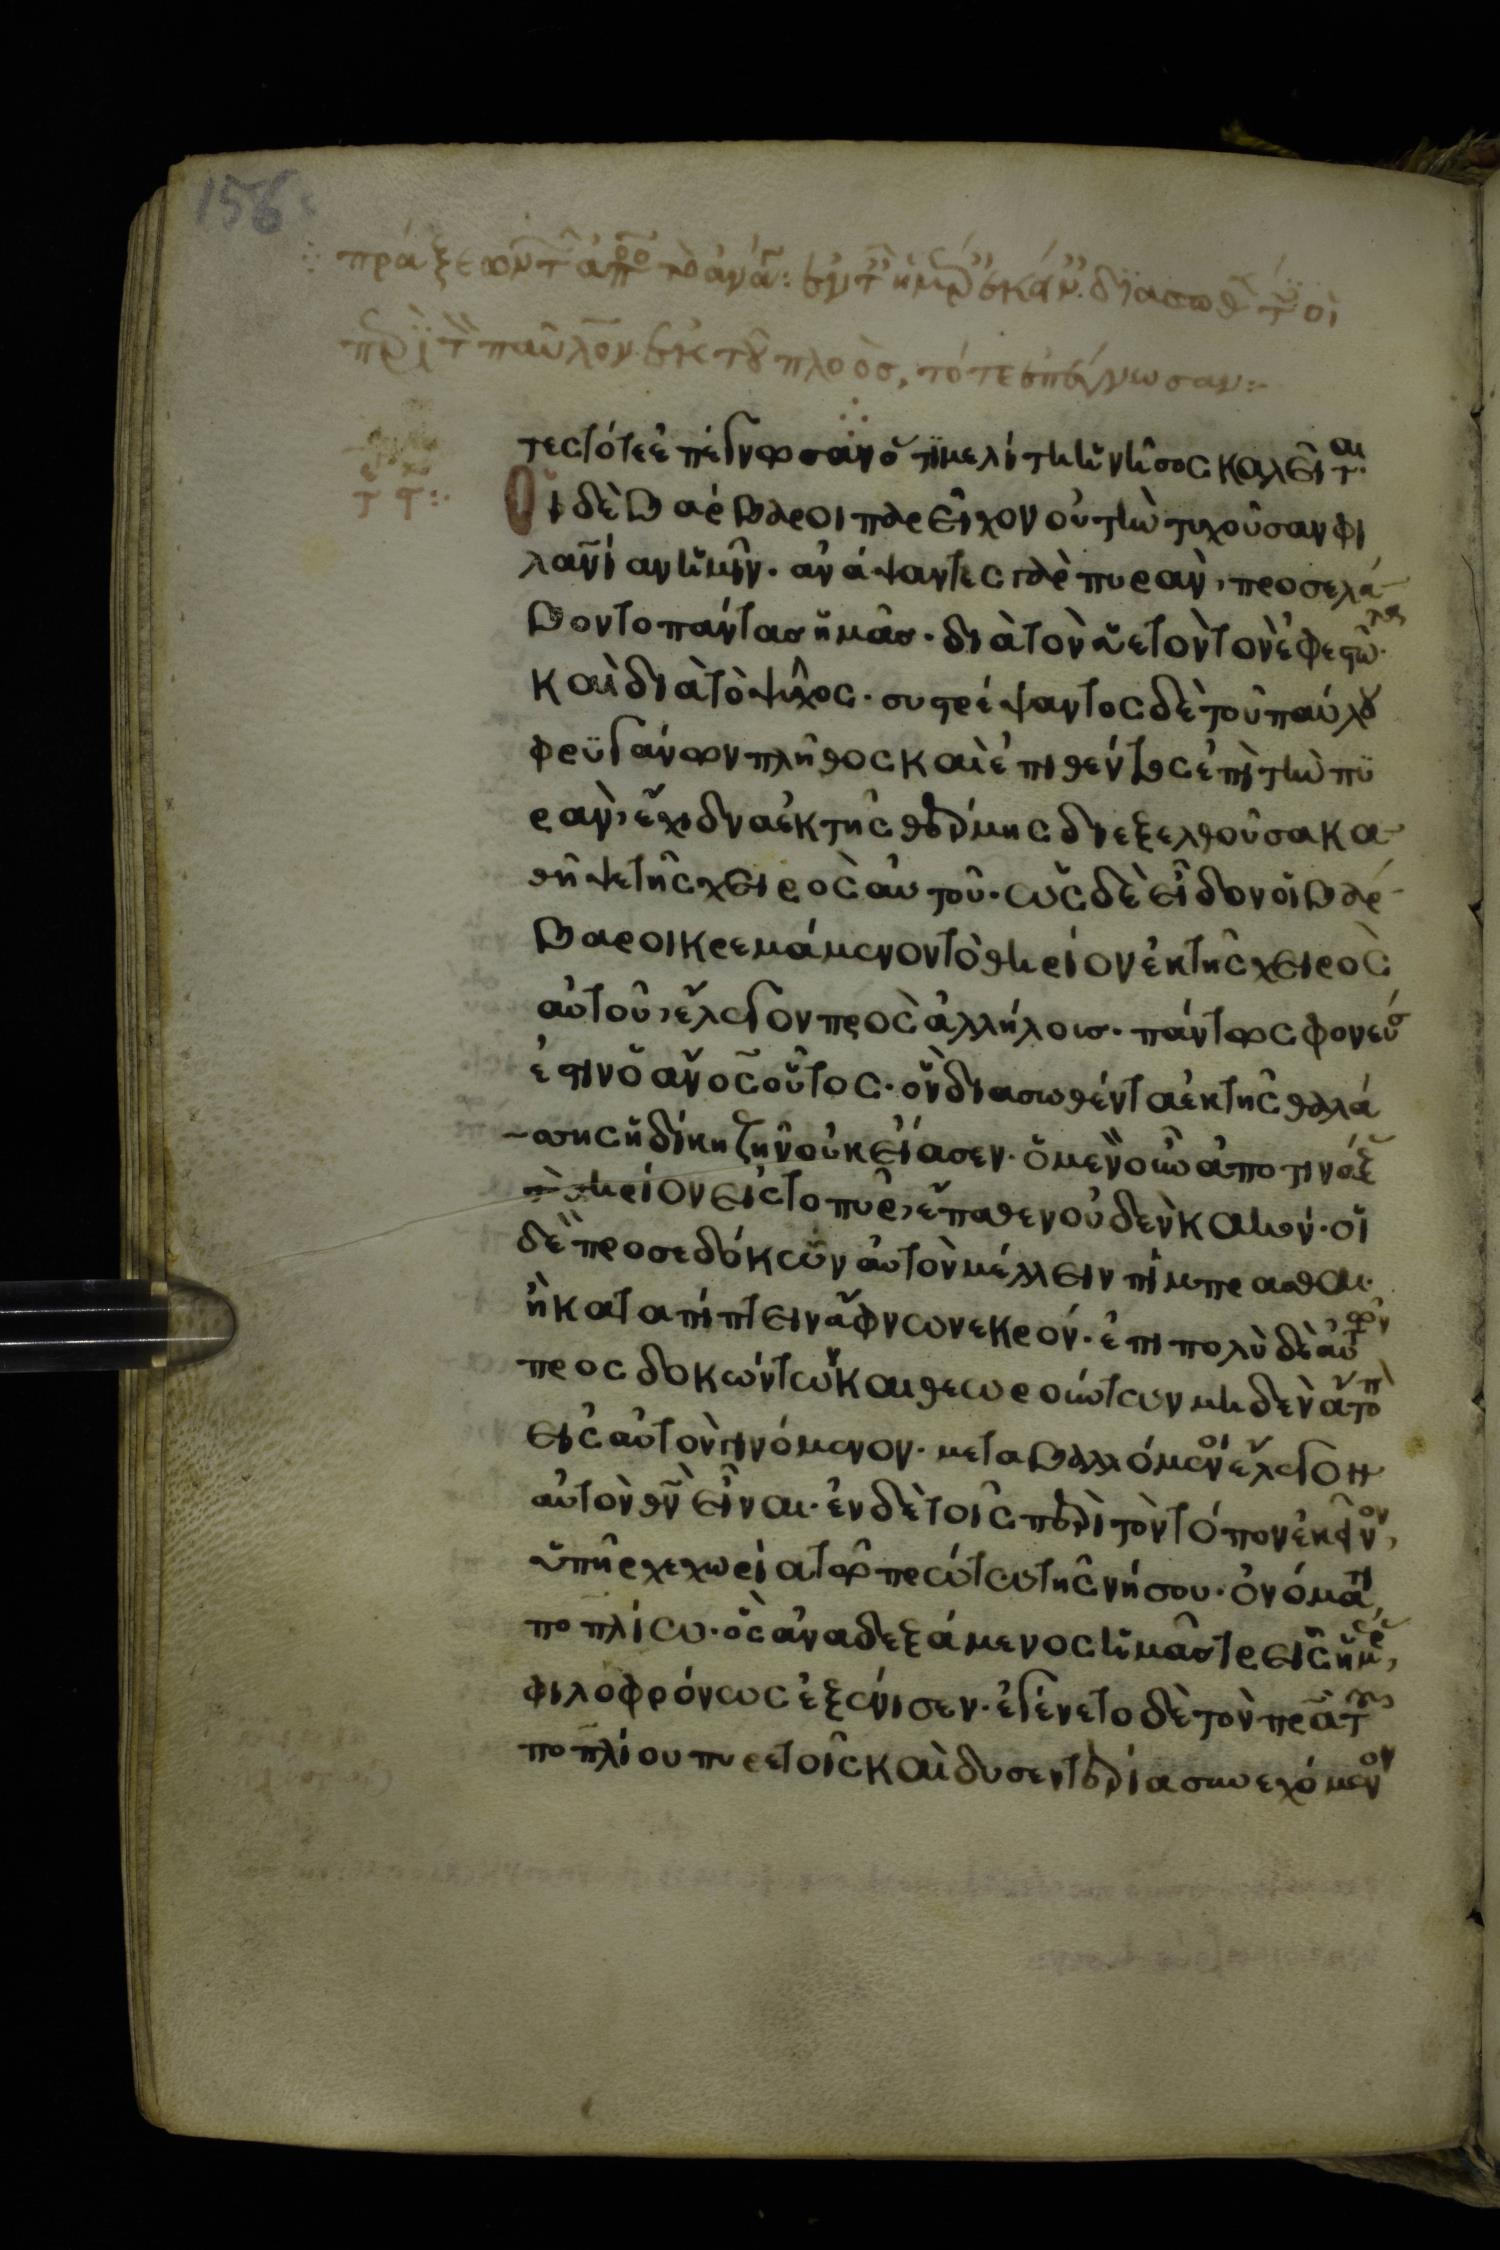 156
πράξεων τ ἀπο τὸ ἀνα: ἐν τ ἡμρ ἐκάν. διασωθ τ οἱ
πρι τ παῦλον ἐκ τοῦ πλοὸσ, τότε ἐπέγνωσαν:
τες τότε ἐπέγνωσαν ὅτι μελίτη ἡ νῆσος καλεῖται.
Οἱ δὲ βάρβαροι παρεῖχον οὐ τὴν τυχοῦσαν φι
λανίαν ἡμῖν. ἀνάψαντες γὰρ πυρὰν, προσελά
βοντο πάντασ ἡμᾶσ. διὰ τὸν ὑετὸν τὸν ἐφεστῶτα.
καὶ διὰ τὸ ψῦχος. συστρέψαντος δὲ τοῦ παύλου
φρυγάνων πλῆθος καὶ ἐπιθέντος ἐπὶ τὴν πυ
ρὰν, ἔχιδνα ἐκ τῆς θέρμης διεξελθοῦσα κα
θῆψε τῆς χειρὸς αὐτοῦ. ὡς δὲ εἶδον οἱ βάρ
βαροι κρεμάμενον τὸ θηρίον ἐκ τῆς χειρὸς
αὐτοῦ, ἔλεγον πρὸς ἀλλήλουσ. πάντως φονεύσ
ἐστιν ὁ ἀνος οὗτος. ὃν διασωθέντα ἐκ τῆς θαλά
σσης ἡ δίκη ζῆν οὐκ εἴασεν. ὁ μὲν οὖν ἀποτινάξ
τὸ θηρίον εἰς το πῦρ, ἔπαθεν οὐδὲν κακόν. οἱ
δὲ προσεδόκων αὐτὸν μέλλειν πίμπρασθαι.
ἢ καταπίπτειν ἄφνω νεκρόν. ἐπι πολὺ δὲ αὐτῶν
προσδοκώντων και θεωρούντων μηδὲν ἄτοπ
εἰς αὐτὸν γινόμενον. μεταβαλλόμενοι ἔλεγον
αὐτὸν θν εἶναι. ἐν δὲ τοῖς περὶ τὸν τόπον ἐκεῖνον,
ὑπῆρχε χωρία τῶ πρώτω τῆς νήσου. ὀνόματι
ποπλίω. ὃς ἀναδεξάμενος ἡμᾶσ τρεῖς ἡμερ,
φιλοφρόνως ἐξένισεν. ἐγένετο δὲ τὸν πρα τ
ποπλίου πυρετοῖς καὶ δυσεντερία συνεχόμενον